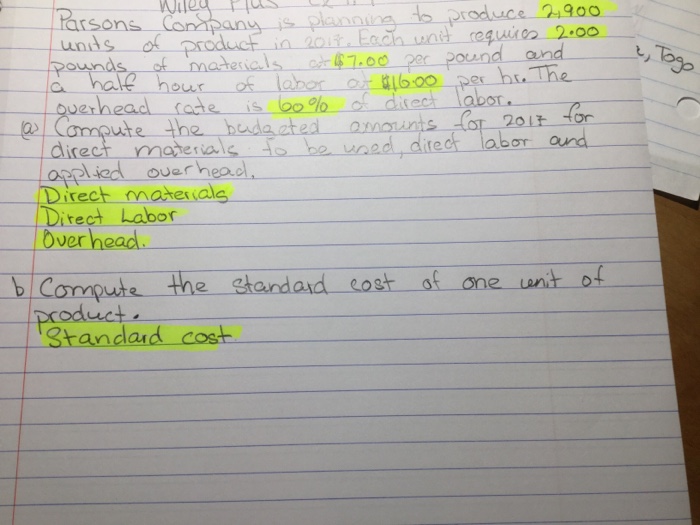 Wiley Plus
Parsons Company is planning to produce 2,900
units of product in 2017. Each unit requires 2.00
pounds of materials at $7.00 per pound and
a half hour of labor at $16.00 per hr. The
overhead rate is 60% of direct labor.
(a) Compute the budgeted amounts for 2017 for
direct materials to be used, direct labor and
applied overhead.
Direct materials
Direct Labor
Overhead.
b Compute the standard cost of one unit of
product.
Standard cost